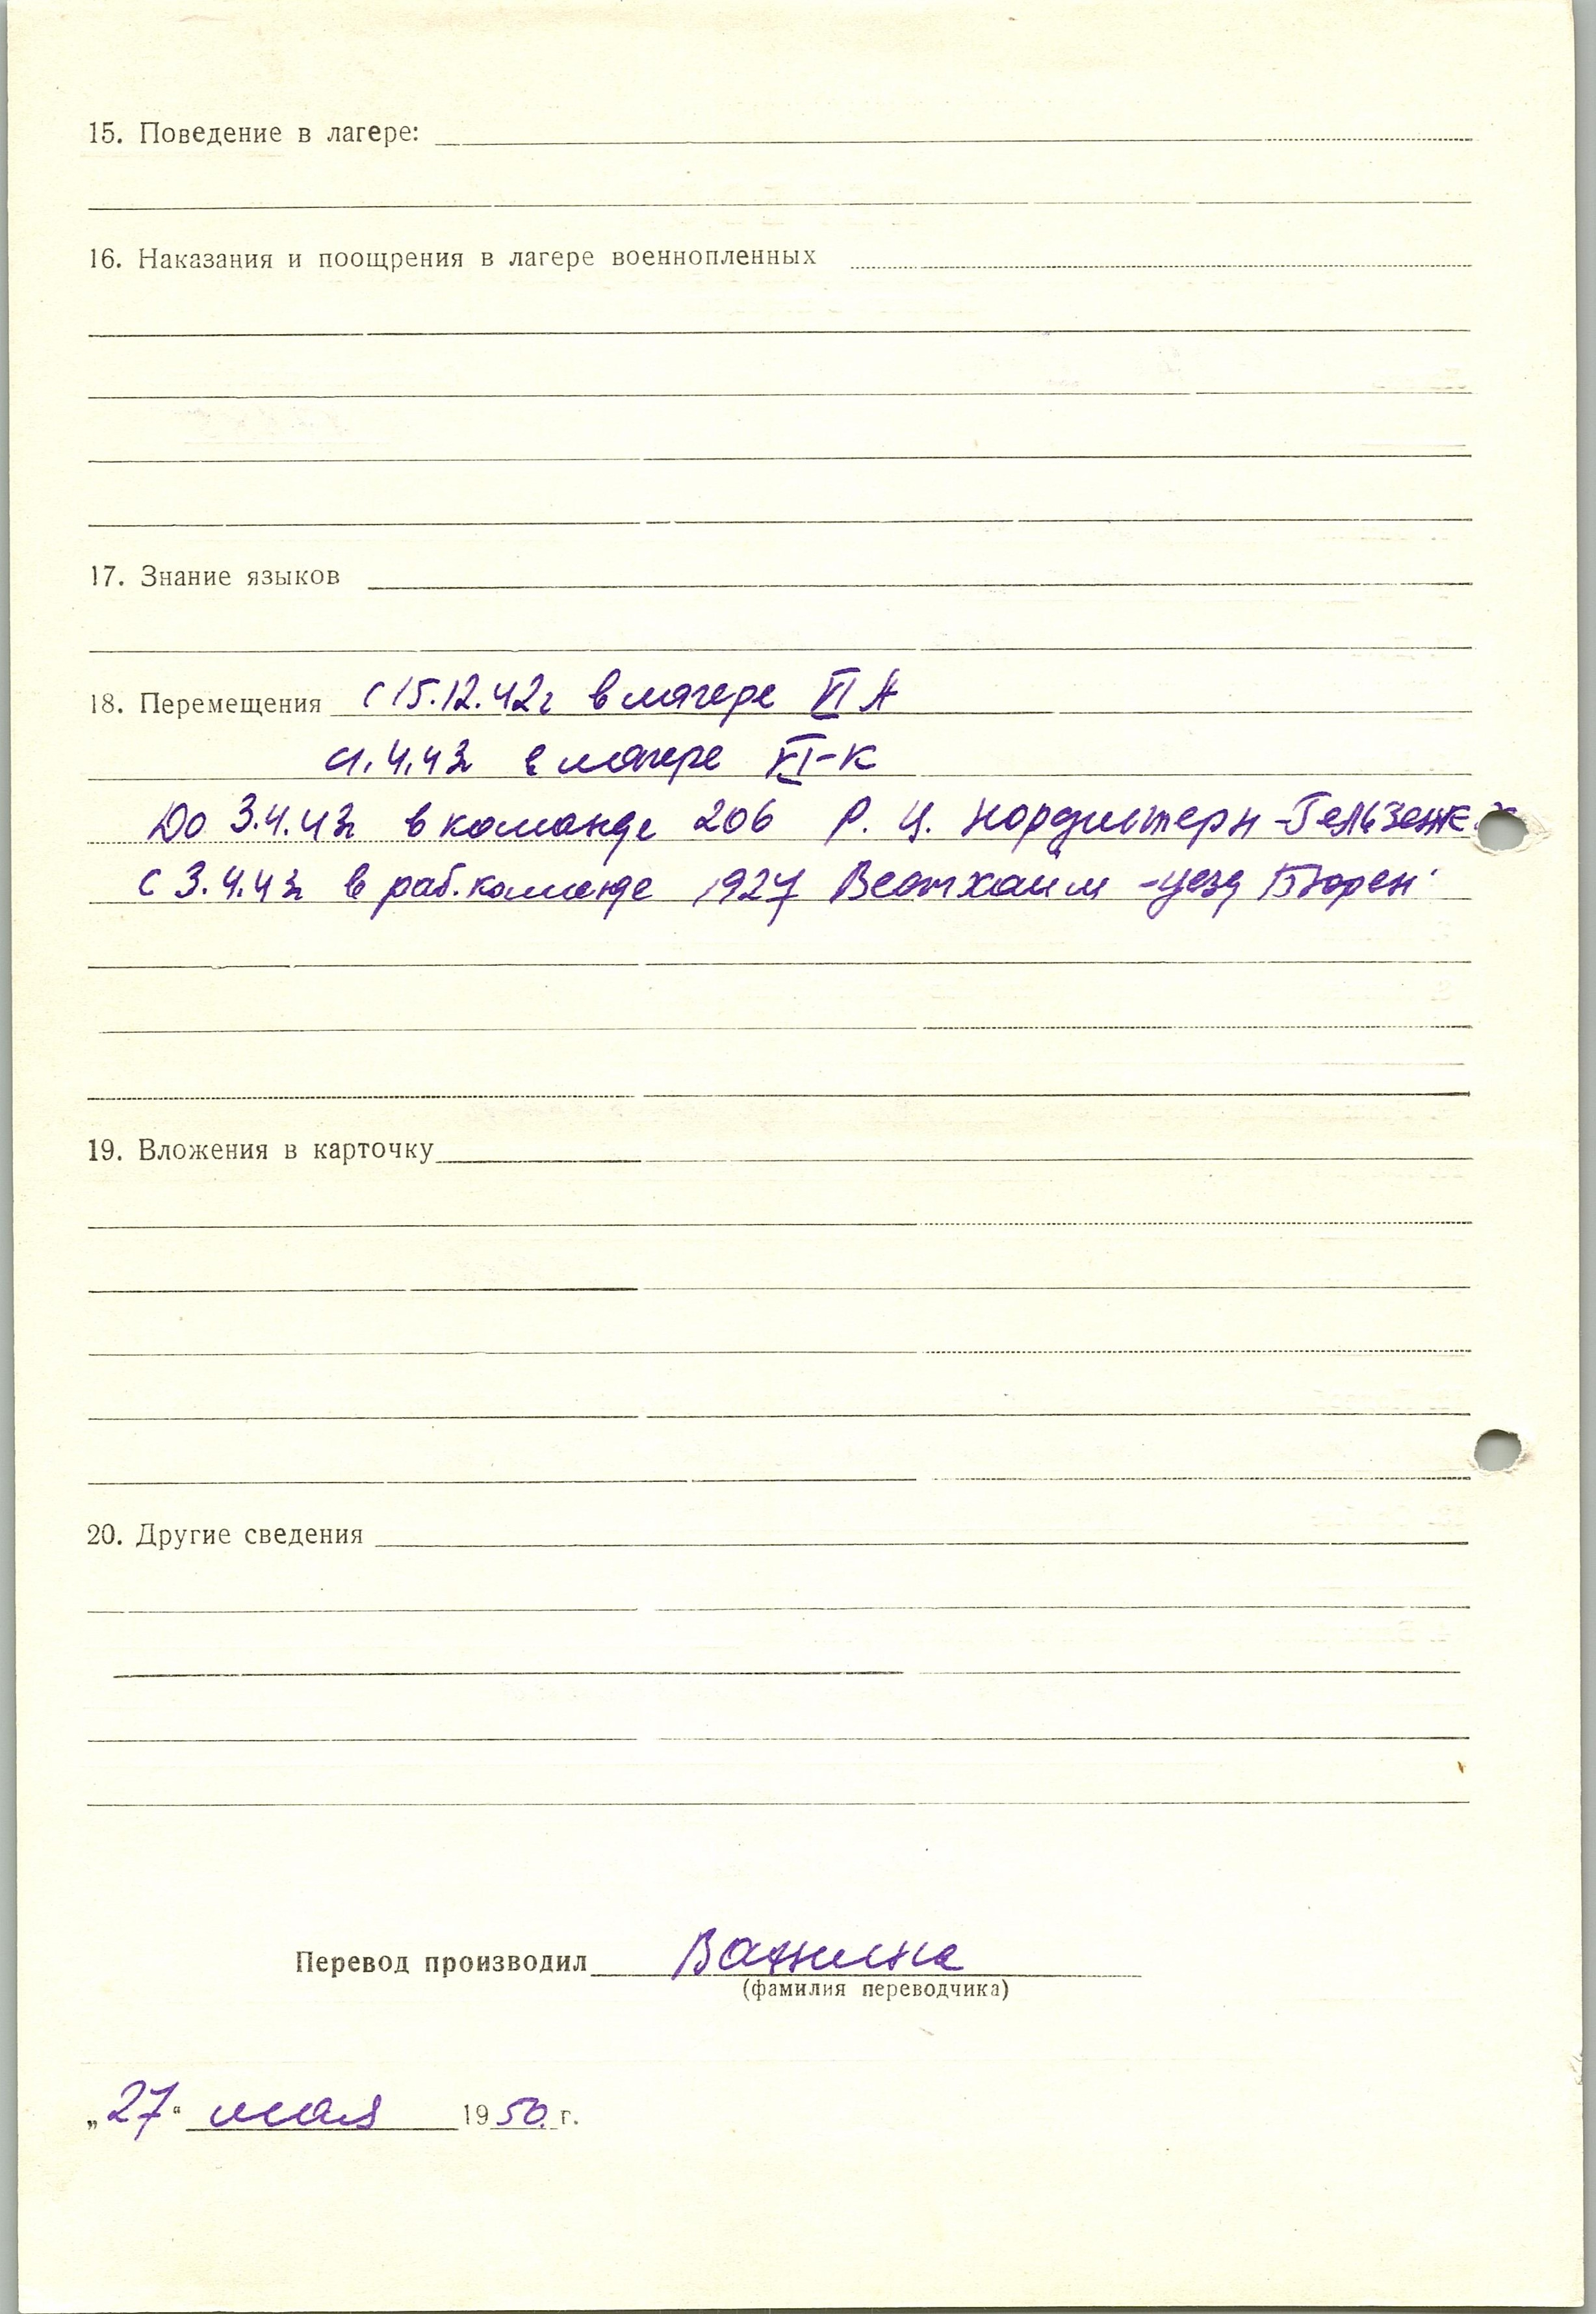 15. Поведение в лагере:
16. Наказания и поощрения в лагере военнопленных
17. Знание языков
18. Перемещения с 15.12.42г в лагере VI А
с 1.4.43г в лагере VI-К
До 3.4.43г в команде 206 Р. Ц. Нордштерн-Гельзенк.
С 3.4.43г в раб. команде 1927 Вестхайм - уезд Бюрен
19. Вложения в карточку
20. Другие сведения
Перевод производил
(фамилия переводчика)
„27“ мая 1950 г.